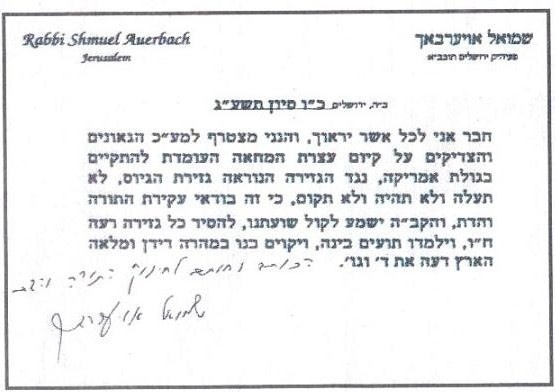 Rabbi Shmuel Auerbach
Jerusalem
שמואל אויערבאך
פעיה"ק ירושלים תובב"א
ב"ה, ירושלים כ"ו סיון תשע"ג
חבר אני לכל אשר יראוך, והנני מצטרף למע"כ הגאונים
והצדיקים על קיום עצרת המחאה העומדת להתקיים
בגולת אמריקה, נגד הגזירה הנוראה גזירת הגיוס, לא
תעלה ולא תהיה ולא תקום, כי זה בודאי עקירת התורה
והדת, והקב"ה ישמע לקול שועתנו, להסיר כל גזירה רעה
ח"ו, וילמדו תועים בינה, ויקוים בנו במהרה דידן ומלאה
הארץ דעה את ד' וגו'.
הכותב וחותם לחיזוק התורה והדת
שמואל אויערבאך